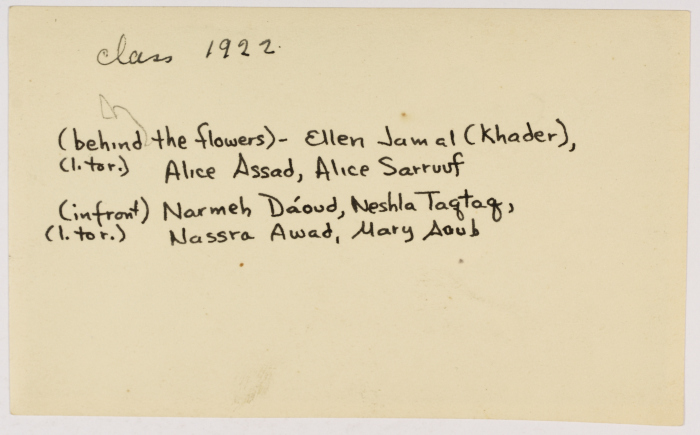 class 1922.
(behind the flowers)- Ellen Jamal (Khader),
(l. to r.) Alice Assad, Alice Sarruuf
(infront) Narmeh Dáoud, Neshla Taqtaq,
(l. to r.) Nassra Awad, Mary Aoub